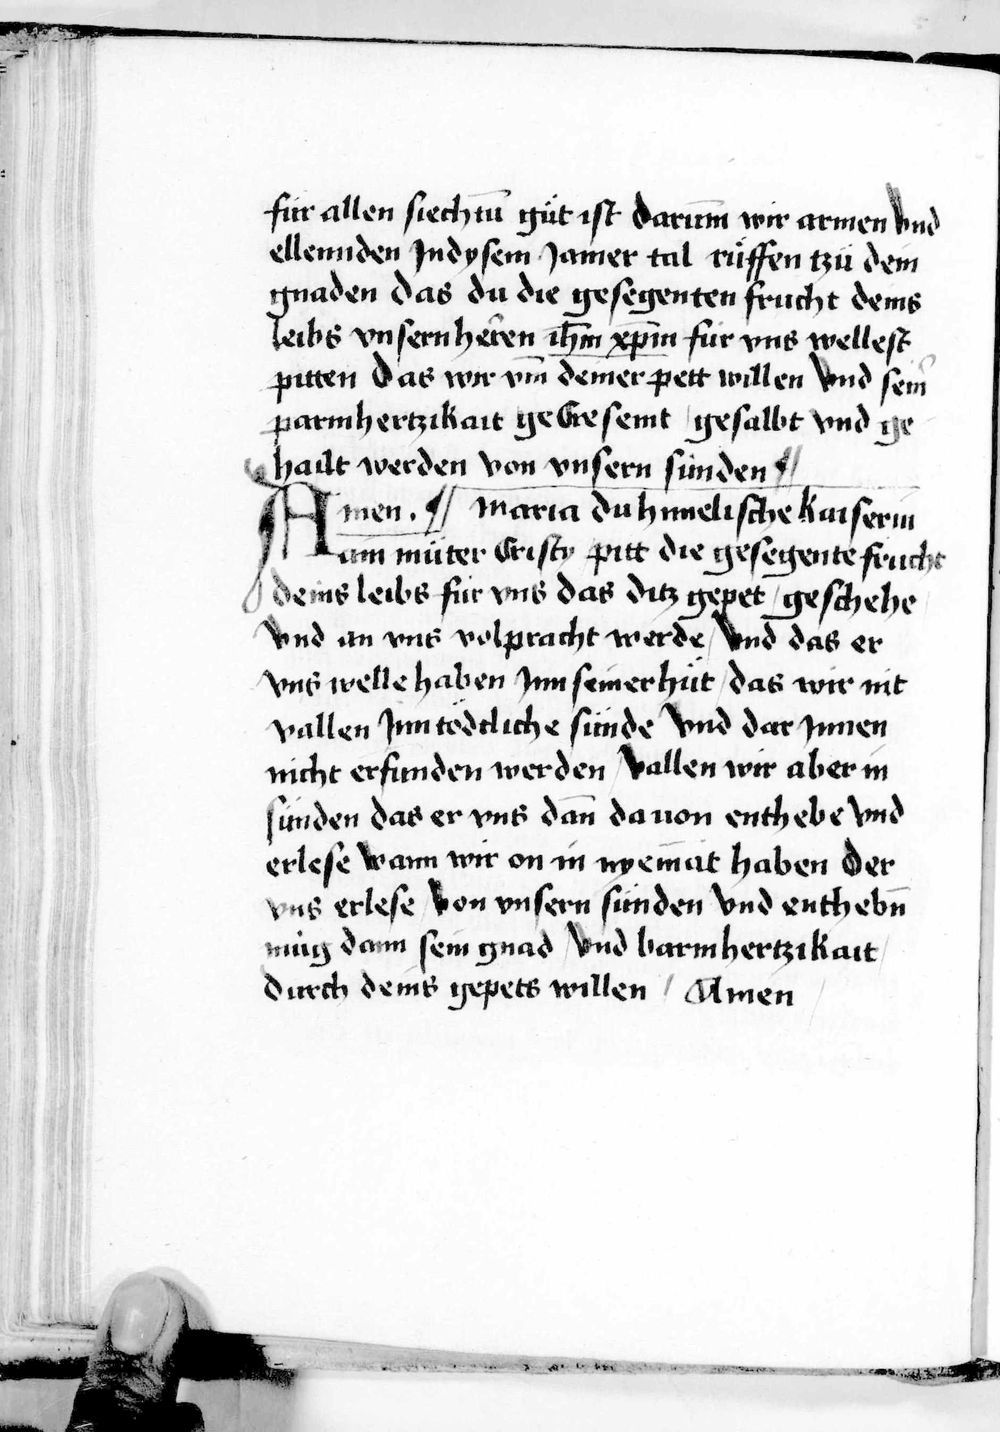 für allen siechtū güt ist darum̄ wir armen vnd
ellennden Jndysem Jamer tal rüffen tzü dein
gnaden das du die gesegenten frucht deins
leibs vnsern herren ih̄m xp̄m für vns wellest
pitten das wir vm̄ deiner pett willen vnd sein̄
parmhertzikait ge Cresemt / gesalbt vnd ge
hailt werden von vnsern sünden ¶
Amen. ¶ Maria du himelische kaiserin
ain müter Cristy pitt die gesegente frücht
deins leibs für vns das ditz gepet / geschehe /
vnd an vns volpracht werde / vnd das er
vns welle haben Jnn seiner hüt / das wir nit
vallen Jnn tödtliche sünde vnd dar Jnnen
nicht erfunden werden / vallen wir aber in
sünden das er vns dan̄ dauon enthebe vnd
erlese wann wir on in nyemāt haben der
vns erlese / von vnsern sünden vnd enthebn̄
müg dann sein gnad / vnd barmhertzikait /
durch deins gepets willen / Amen /